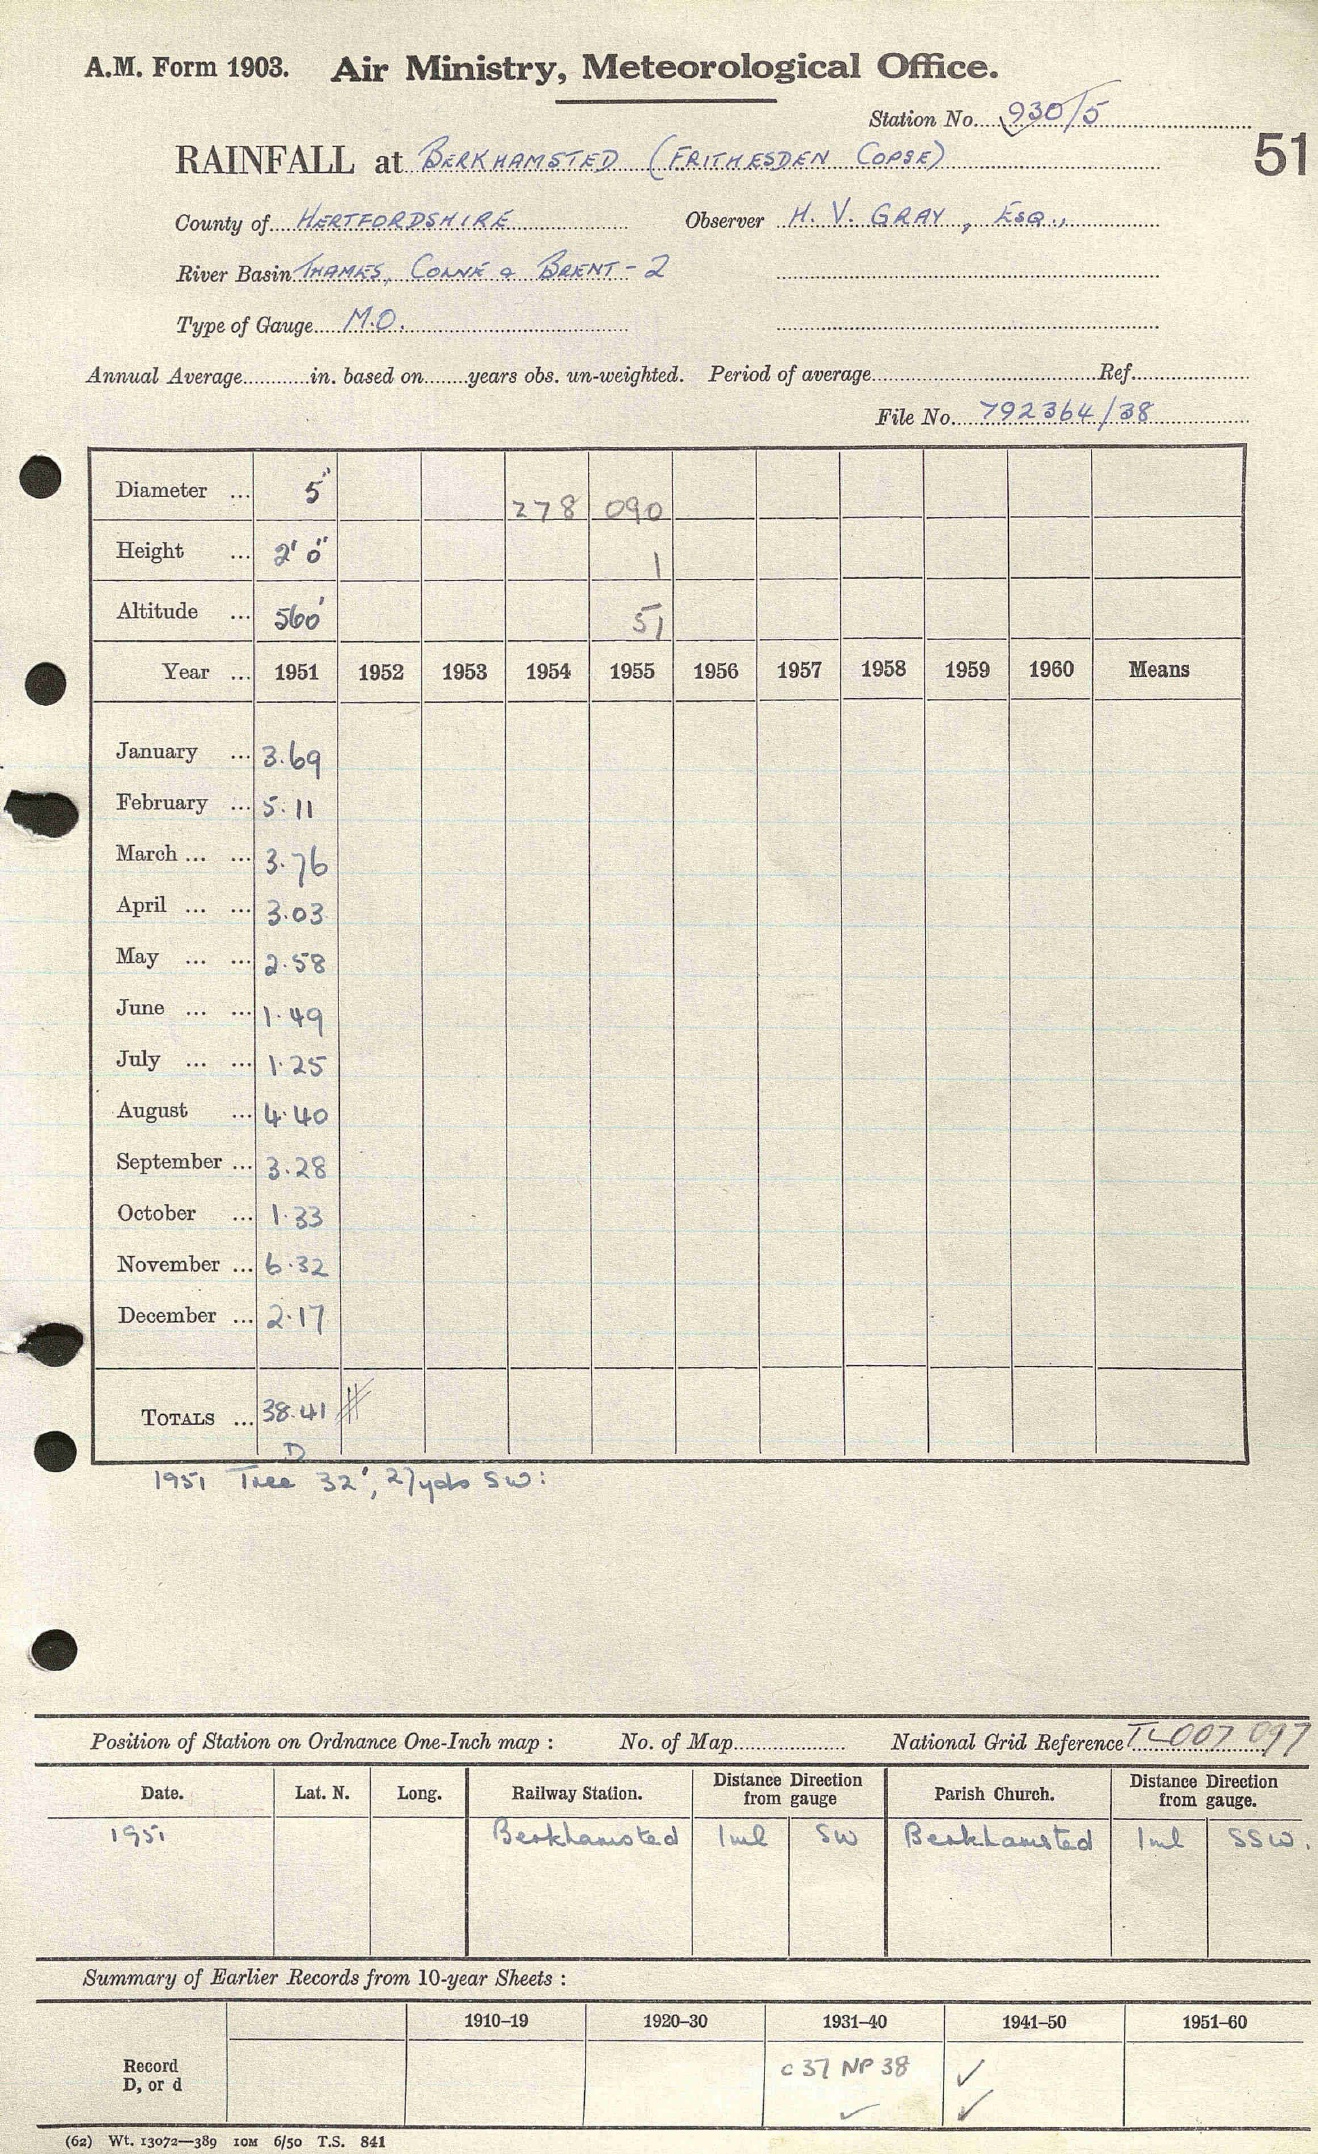 A.M. Form 1903. Air Ministry, Meteorological Office.
Station No. 930/5
51
RAINFALL at BERKHAMSTED (FRITHESDEN COPSE)
County of HERTFORDSHIRE Observer H. V. GRAY, ESQ.,
River Basin THAMES, COLNE & BRENT - 2
Type of Gauge M.O.
Annual Average............in. based on........years obs. un-weighted. Period of average............Ref............
File No. 792364/38
Diameter ... 5" 278 090
Height ... 2' 0" 1
Altitude ... 560' 51
Year ... 1951 1952 1953 1954 1955 1956 1957 1958 1959 1960 Means
January ... 3.69
February ... 5.11
March ... ... 3.76
April ... ... 3.03
May ... ... 2.58
June ... ... 1.49
July ... ... 1.25
August ... 4.40
September ... 3.28
October ... 1.33
November ... 6.32
December ... 2.17
TOTALS ... 38.41
D
1951 Tree 32', 27yds SW:
Position of Station on Ordnance One-Inch map : No. of Map............ National Grid Reference TL 007 097
Date. Lat. N. Long. Railway Station. Distance Direction from gauge Parish Church. Distance Direction from gauge.
1951 Berkhamsted 1ml SW Berkhamsted 1ml SSW.
Summary of Earlier Records from 10-year Sheets :
1910–19 1920–30 1931–40 1941–50 1951–60
Record D, or d c 37 NP 38 ✓
✓ ✓
(62) Wt. 13072—389 10M 6/50 T.S. 841